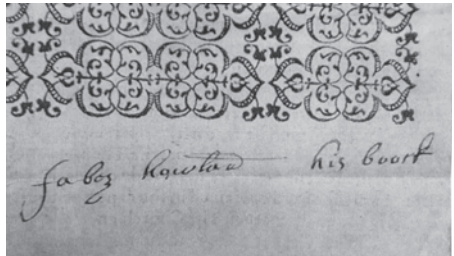 Jabez howland his boock